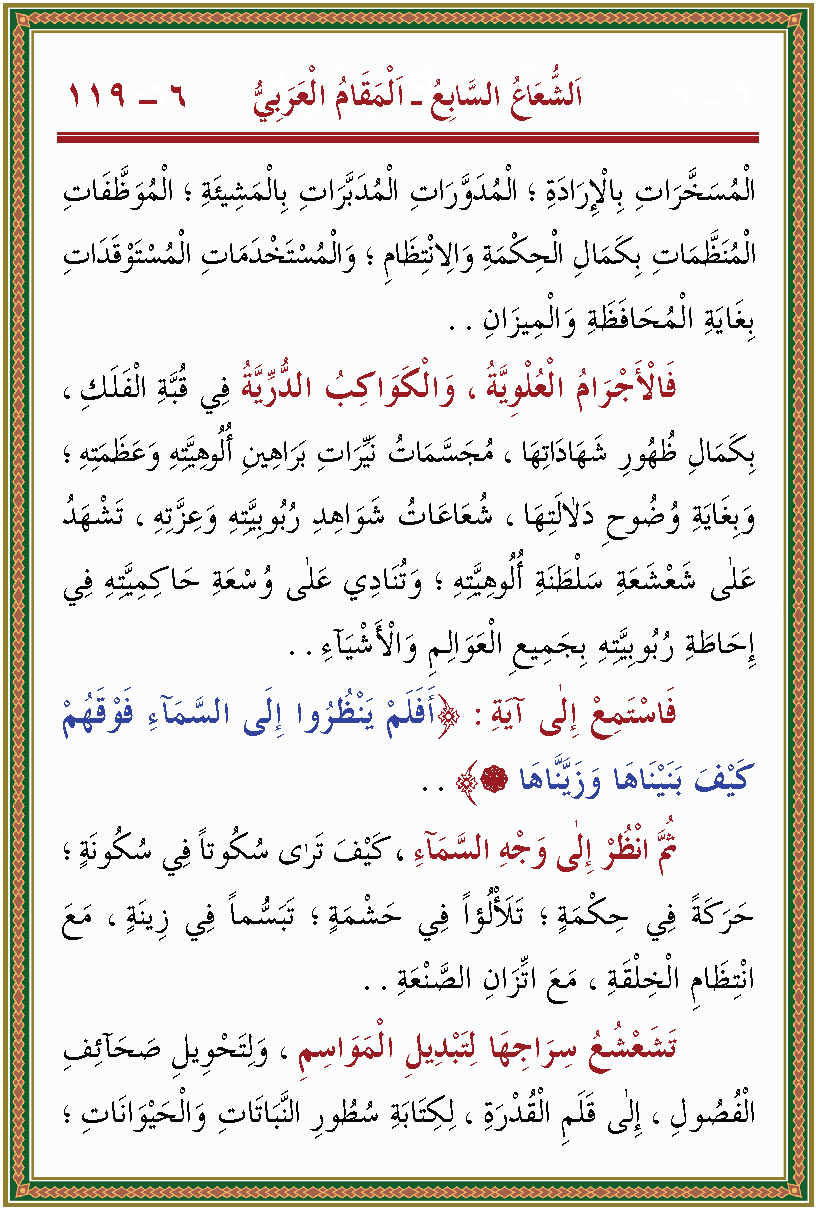 اَلشُّعَاعُ السَّابِعُ ـ اَلْمَقَامُ الْعَرَبِيُّ ٦ – ١١٩
الْمُسَخَّرَاتِ بِالْإِرَادَةِ ؛ الْمُدَوَّرَاتِ الْمُدَبَّرَاتِ بِالْمَشِيئَةِ ؛ الْمُوَظَّفَاتِ
الْمُنَظَّمَاتِ بِكَمَالِ الْحِكْمَةِ وَالِانْتِظَامِ ؛ وَالْمُسْتَخْدَمَاتِ الْمُسْتَوْقَدَاتِ
بِغَايَةِ الْمُحَافَظَةِ وَالْمِيزَانِ . .
فَالْأَجْرَامُ الْعُلْوِيَّةُ ، وَالْكَوَاكِبُ الدُّرِّيَّةُ فِي قُبَّةِ الْفَلَكِ ،
بِكَمَالِ ظُهُورِ شَهَادَاتِهَا ، مُجَسَّمَاتُ نَيِّرَاتِ بَرَاهِينِ أُلُوهِيَّتِهِ وَعَظَمَتِهِ ؛
وَبِغَايَةِ وُضُوحِ دَلَالَتِهَا ، شُعَاعَاتُ شَوَاهِدِ رُبُوبِيَّتِهِ وَعِزَّتِهِ ، تَشْهَدُ
عَلٰى شَعْشَعَةِ سَلْطَنَةِ أُلُوهِيَّتِهِ ؛ وَتُنَادِي عَلٰى وُسْعَةِ حَاكِمِيَّتِهِ فِي
إِحَاطَةِ رُبُوبِيَّتِهِ بِجَمِيعِ الْعَوَالِمِ وَالْأَشْيَآءِ . .
فَاسْتَمِعْ إِلٰى آيَةِ : ﴿أَفَلَمْ يَنْظُرُوا إِلَى السَّمَآءِ فَوْقَهُمْ
كَيْفَ بَنَيْنَاهَا وَزَيَّنَّاهَا ۝﴾ . .
ثُمَّ انْظُرْ إِلٰى وَجْهِ السَّمَآءِ ، كَيْفَ تَرٰى سُكُوتاً فِي سُكُونَةٍ ؛
حَرَكَةً فِي حِكْمَةٍ ؛ تَلَأْلُؤاً فِي حَشْمَةٍ ؛ تَبَسُّماً فِي زِينَةٍ ، مَعَ
انْتِظَامِ الْخِلْقَةِ ، مَعَ اتِّزَانِ الصَّنْعَةِ . .
تَشَعْشُعُ سِرَاجِهَا لِتَبْدِيلِ الْمَوَاسِمِ ، وَلِتَحْوِيلِ صَحَآئِفِ
الْفُصُولِ ، إِلٰى قَلَمِ الْقُدْرَةِ ، لِكِتَابَةِ سُطُورِ النَّبَاتَاتِ وَالْحَيْوَانَاتِ ؛